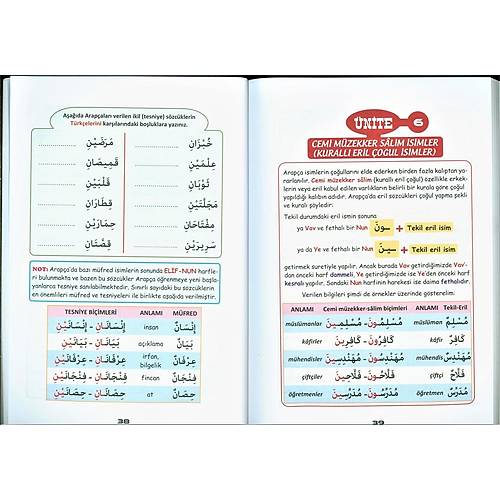 Aşağıda Arapçaları verilen ikil (tesniye) sözcüklerin
Türkçelerini karşılarındaki boşluklara yazınız.
خُبْزَانِ ............ مَرَضَيْنِ ............
عِلْمَيْنِ ............ قَمِيصَانِ ............
ثَوْبَانِ ............ قَلْبَيْنِ ............
مَجَلَّتَيْنِ ............ قِطَارَانِ ............
مِفْتَاحَانِ ............ حِمَارَيْنِ ............
سَرِيرَيْنِ ............ قِصَّتَانِ ............
NOT: Arapça'da bazı müfred isimlerin sonunda ELİF-NUN harfleri bulunmakta ve bunlar Arapça öğrenmeye yeni başlayanlarca tesniye sanılabilmektedir. Sınırlı sayıdaki bu sözcüklerin en önemlileri müfred ve tesniyeleri ile birlikte aşağıda verilmiştir.
TESNİYE BİÇİMLERİ ANLAMI MÜFRED
إِنْسَانَانِ - إِنْسَانَيْنِ insan إِنْسَانٌ
بَيَانَانِ - بَيَانَيْنِ açıklama بَيَانٌ
عِرْفَانَانِ - عِرْفَانَيْنِ irfan, bilgelik عِرْفَانٌ
فِنْجَانَانِ - فِنْجَانَيْنِ fincan فِنْجَانٌ
حِصَانَانِ - حِصَانَيْنِ at حِصَانٌ
38
ÜNİTE 6
CEMİ MÜZEKKER SÂLİM İSİMLER
(KURALLI ERİL ÇOĞUL İSİMLER)
Arapça isimlerin çoğullarını elde ederken birden fazla kalıptan yararlanılır. Cemi müzekker sâlim (kurallı eril çoğul) özellikle erkeklerin veya eril kabul edilen varlıkların belirli bir kurala göre çoğul yapıldığı kalıbın adıdır. Arapça'da eril sözcükleri çoğul yapma şekli ve kuralı şöyledir:
Tekil durumdaki eril ismin sonuna
ya Vav ve fethalı bir Nun ـــونَ + Tekil eril isim
ya da Ye ve fethalı bir Nun ـــينَ + Tekil eril isim
getirmek suretiyle yapılır. Ancak burada Vav getirdiğimizde Vav'dan önceki harf dammeli, Ye getirdiğimizde ise Ye'den önceki harf kesralı yapılır. Sondaki Nun harfinin harekesi ise daima fethalıdır.
Verilen bilgileri şimdi de örnekler üzerinde gösterelim.
ANLAMI Cemi müzekker-sâlim biçimleri ANLAMI Tekil-Eril
müslümanlar مُسْلِمُونَ - مُسْلِمِينَ müslüman مُسْلِمٌ
kâfirler كَافِرُونَ - كَافِرِينَ kâfir كَافِرٌ
mühendisler مُهَنْدِسُونَ - مُهَنْدِسِينَ mühendis مُهَنْدِسٌ
çiftçiler فَلَّاحُونَ - فَلَّاحِينَ çiftçi فَلَّاحٌ
öğretmenler مُدَرِّسُونَ - مُدَرِّسِينَ öğretmen مُدَرِّسٌ
39